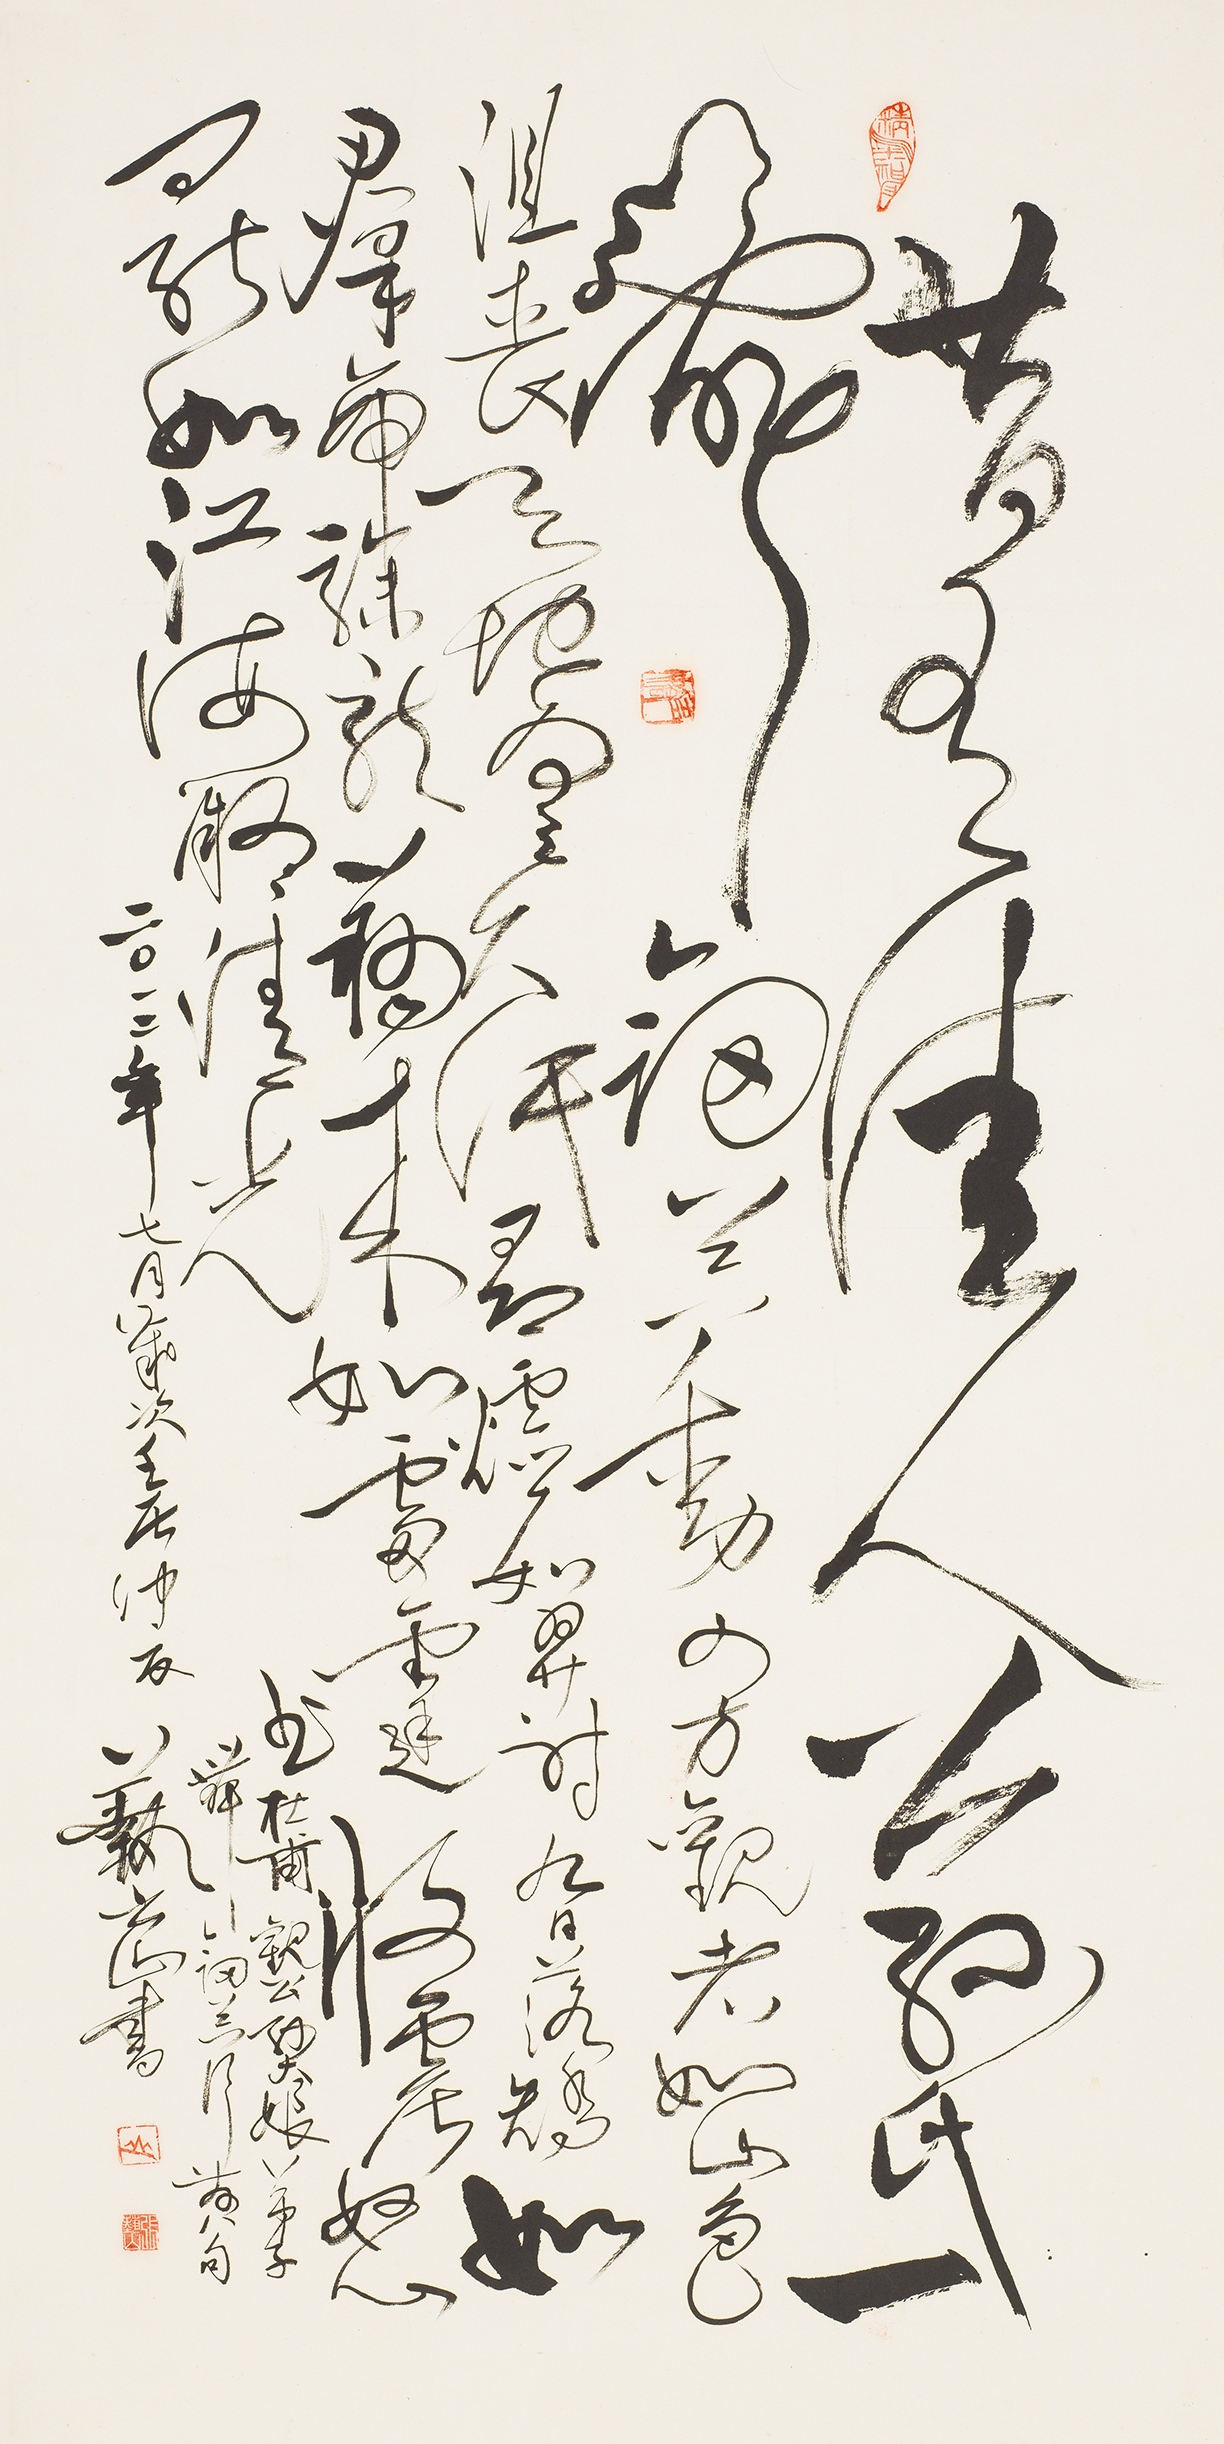 昔有佳人公孫氏一
舞劍器動四方觀者如山色
沮喪天地為之久低昂㸌如羿射九日落矯如
群帝驂龍翔來如雷霆收震怒
罷如江海凝清光
書杜甫觀公孫大娘弟子
舞劍器行前八句
二〇一二年七月歲次壬辰仲夏
岳山書